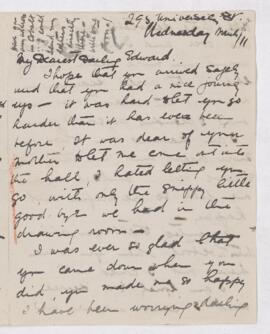 295 University St
Wednesday
My Dearest Darling Edward
I hope that you arrived safely
and that you had a nice journey
up – it was hard to let you go
harder than it has ever been
before. It was dear of your
mother to let me come out into
the hall, I hated letting you
go with only the snappy little
good bye we had in the
drawing room –
I was ever so glad that
you came down when you
did you made me so happy
I have been worrying darling